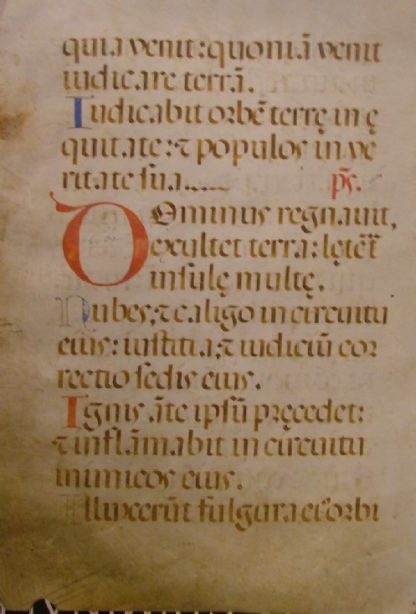 quia venit: quoniā venit
iudicare terrā.
Iudicabit orbē terrę in ę
quitate: ⁊ populos in ve
ritate sua. ps̄.
Dominus regnavit,
exultet terra: lętēt̄
insulę multę.
Nubes, ⁊ caligo in circuitu
eius: iustitia, ⁊ iudiciū cor
rectio sedis eius.
Ignis āte ipsū pręcedet:
⁊ inflāmabit in circuitu
inimicos eius.
Illuxerūt fulgura eiꝰ orbi